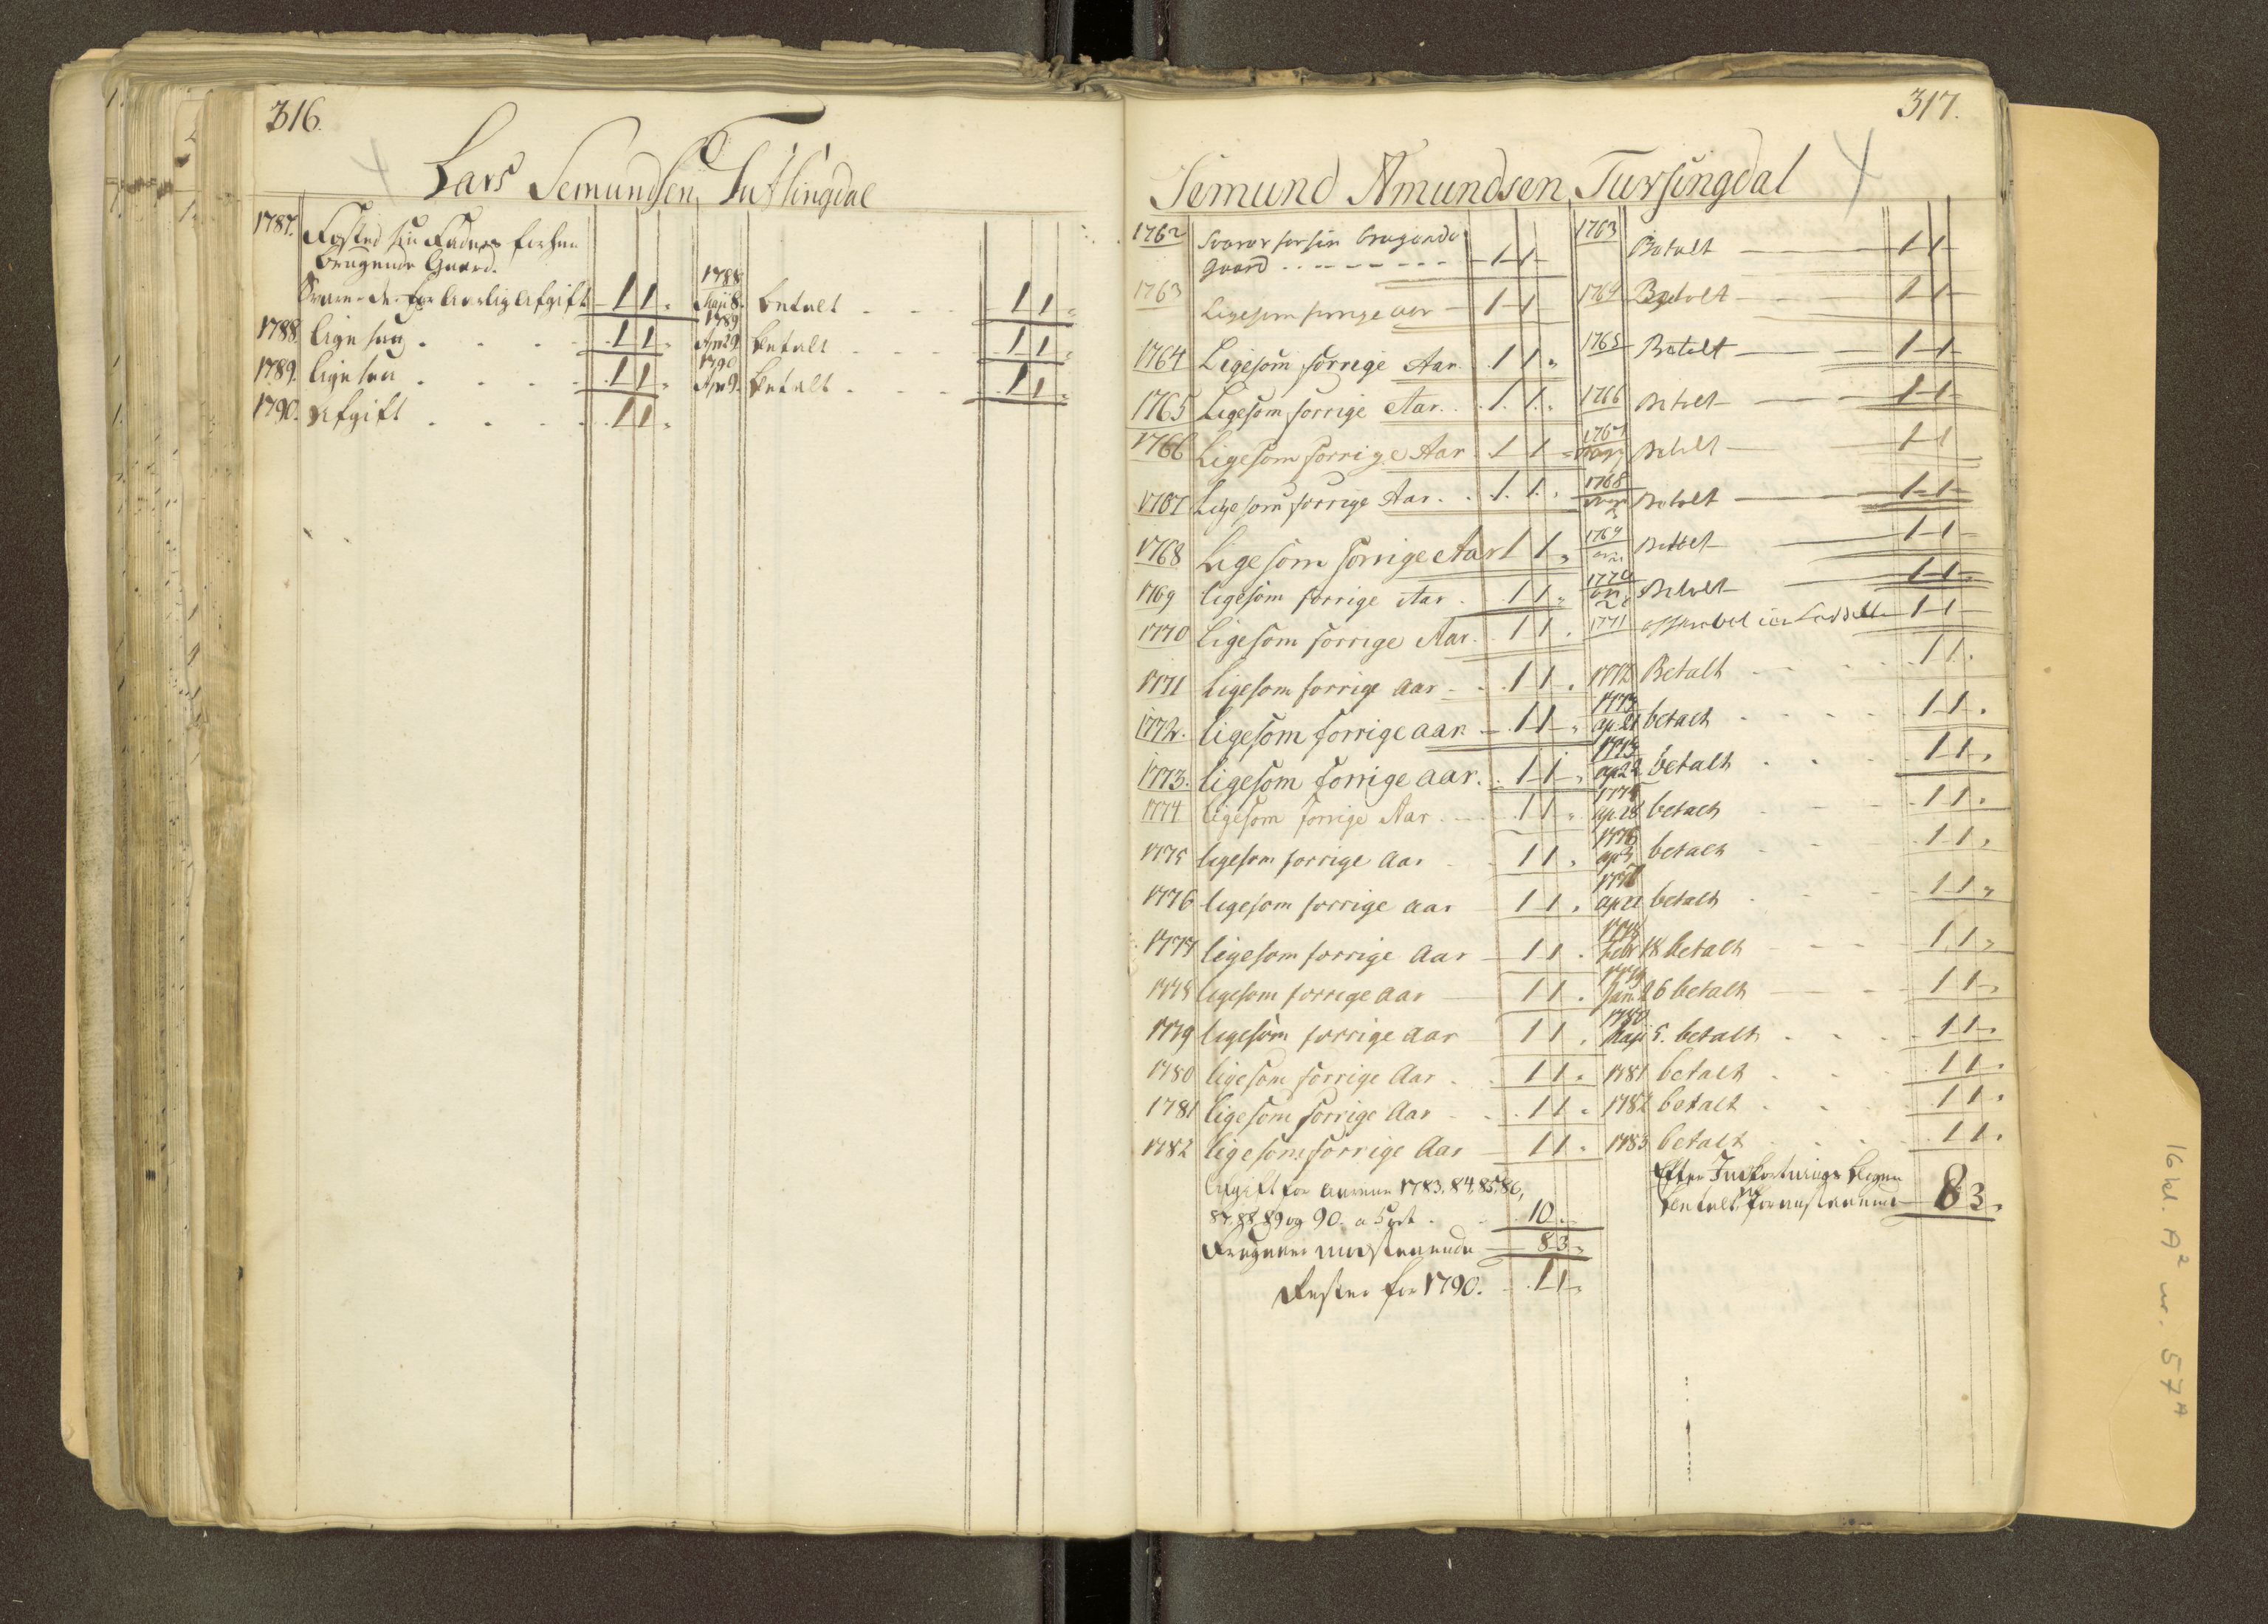 316.
Lars Semundsen Tutlingdal
1787. Fæsted sin Faders forhen
brugende Gaard.
Svarer for aarlig Afgift 1 1 "
1788
Maji 8. betalt 1 1 "
1788. ligesaa 1 1 "
1789
Apr 29 betalt 1 1 "
1789. ligesaa 1 1 "
1790
Apr 9. betalt 1 1 "
1790. Afgift 1 1 "
317.
Semund Amundsen Tursingdal
1762 Svarer for sin brugende
Gaard 1 1
1763 Betalt 1 1
1763 Ligesom forrige aar 1 1
1764 Betalt 1 1
1764 Ligesom forrige Aar 1 1 "
1765 Betalt 1 1
1765 Ligesom forrige Aar 1 1 "
1766 Betalt 1 1
1766 Ligesom forrige Aar 1 1 "
1767 Betalt 1 1
1767 Ligesom forrige Aar 1 1 "
1768 Betalt 1 1
1768 Ligesom forrige Aar 1 1 "
1769 Betalt 1 1
1769 ligesom forrige Aar 1 1 "
1770 Betalt 1 1
1770 Ligesom forrige Aar 1 1 "
1771 1 1
1771 Ligesom forrige aar 1 1 "
1772 Betalt 1 1 "
1772. ligesom forrige aar 1 1 "
1773
ap 21 betalt 1 1 "
1773. ligesom forrige aar. 1 1 "
ap 22 betalt 1 1 "
1774 ligesom forrige Aar 1 1 "
1775
ap 28 betalt 1 1 "
1775 ligesom forrige Aar 1 1 "
1776
ap 3 betalt 1 1 "
1776 ligesom forrige aar 1 1 "
1777
ap 21 betalt 1 1 "
1777 ligesom forrige Aar 1 1 "
1778
Febr 18 betalt 1 1 "
1778 ligesom forrige aar 1 1 "
1779
Jan. 26 betalt 1 1 "
1779 ligesom forrige Aar 1 1 "
1780
Maji 5. betalt 1 1 "
1780 ligesom forrige Aar 1 1 "
1781 betalt 1 1 "
1781 ligesom forrige Aar 1 1 "
1782 betalt 1 1 "
1782 ligesom forrige Aar 1 1 "
1783 betalt 1 1 "
Afgift for Aarene 1783. 84. 85. 86,
87. 88 89 og 90. a 5 ort 10 "
Efter Indfordrings Bogen
betalt foranstaaende 8 3 "
Fragaaer modstaaende 8 3 "
Rester for 1790. 1 1 "
16 kl. A² nr. 57A